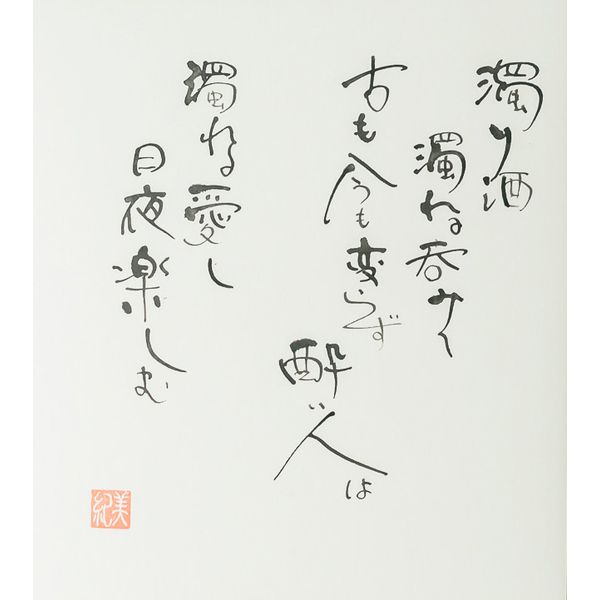 濁り酒
濁れる呑みて
古も今も変らず
酔い人は
濁れる愛し
日夜楽しむ
美紀